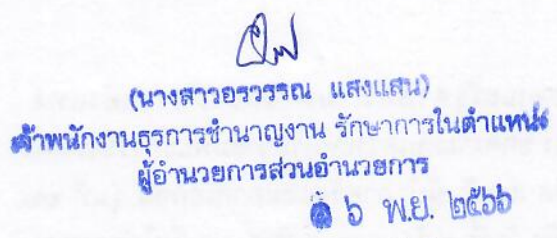 (นางสาวอรวรรณ แสงแสน)
เจ้าพนักงานธุรการชำนาญงาน รักษาการในตำแหน่ง
ผู้อำนวยการส่วนอำนวยการ
๖ พ.ย. ๒๕๖๖